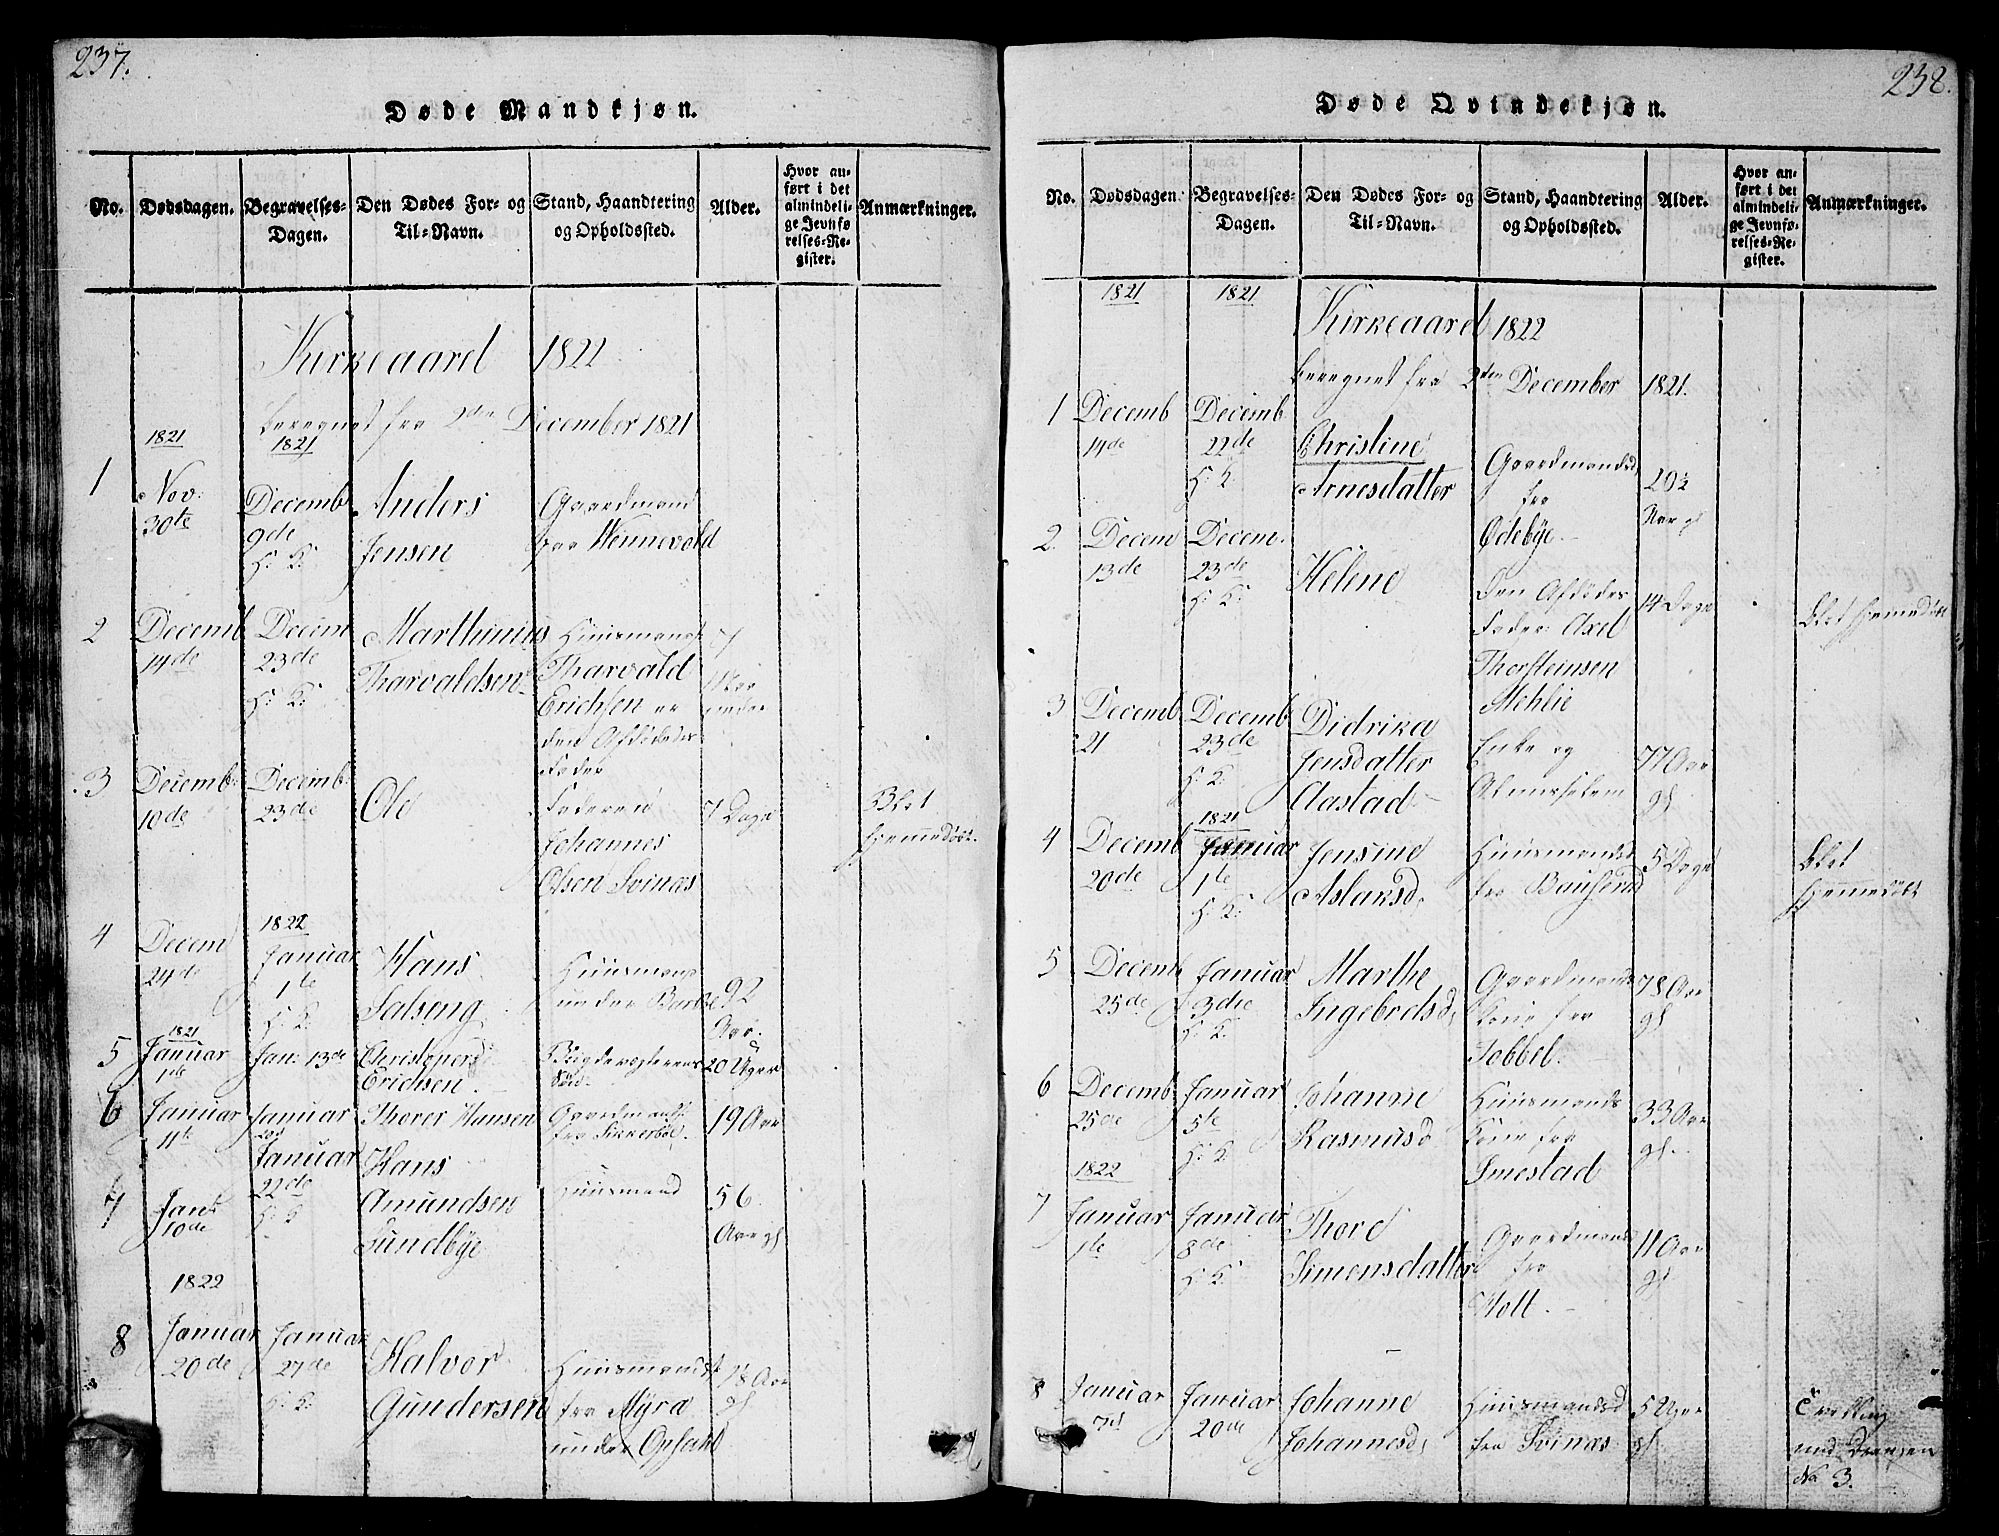 237.
Døde Mandkjøn.
No.
Dødsdagen.
Begravelses-
Dagen.
Den Dødes For- og
Til-Navn.
Stand, Haandtering
og Opholdssted.
Alder.
Hvor an-
ført i det
almindeli-
ge Jevnfø-
relses-Re-
gister.
Anmærkninger.
Kirkeaaret 1822
beregnet fra 2den December 1821
1821
1821
1
Nov:
30te
Decemb
9de
H: K:
Anders
Jensen
Gaardmand
fra Wennevold
2
Decemb
14de
Decem
23de
H: K:
Marthinius
Tharvaldsen
Huusmand
Tharvald
Erichsen er
den Afdødes
Fader
3
Decemb:
10de
Decemb:
23de
Ole
Faderen
Johannes
Olsen Svinaas
7 Dage
Blot
hjemmedøbt.
4
Decem
24de
1822
Januar
1te
H: K:
Hans
Salseng
Huusmand
under
92
Aar.
5
1821
Januar
1te
Jan: 13de
Christopher
Erichsen
Søn
20 Uger
6
Januar
11te
Januar
20de
Thorer Hansen
Gaardmands
fra Sikkerbøl.
19 Aar
7
Jan:
10de
Januar
22de
H: K
Hans
Amundsen
Sundbye
Huusmand
56
Aar gl
1822
8
Januar
20de
Januar
27de
H: K:
Halvor
Gundersen
Huusmands
fra Myra
under Opsahl
Aar
gl
238.
Døde Qvindekjøn.
No.
Dødsdagen
Begravelses-
Dagen.
Den Dødes For- og
Til-Navn.
Stand, Haandtering
og Opholdssted.
Alder.
Hvor an-
ført i det
almindeli-
ge Jevnfø-
relses-Re-
gister.
Anmærkninger.
1821
1821
Kirkeaaret 1822
beregnet fra 2den December 1821.
1
Decemb
14de
Decemb
22de
H: K:
Christine
Arnesdatter
Gaardmandsd
fra
Ødebye.
Aar gl
2.
Decem
13de
Decem.
23de
H: K:
Helene
Den Afdødes
Fader: Axel
Thorsteinsen
Mehlie
14 Dage
blot hjemmedøbt
3
Decemb
21
Decemb
23de
H: K:
Didrika
Jensdatter
Aastad
Enke og
Almisselem
77 Aar
gl
4
Decemb
20de
1821
Januar
1te
H: K:
Jensine
Aslaksd,
Huusmandsd
fra Bausend
5 Dage
blot
hjemmedøbt
5
Decemb
25de
Januar
3die
H: K:
Marthe
Ingebretsd,
Gaardmands
Kone fra
Sobbel.
78 Aar
gl
6
Decemb
25de
Januar
5te
H: K
Johanne
Rasmusd
Huusmands
Kone fra
Smestad
33 Aar
gl.
1822
7
Januar
1te
Januar
8de
H: K:
Thore
Simensdatter
Gaardmands
fra
Holt.
11 Aar
gl
8
Januar
Januar
20de
Johanne
Johannesd,
Huusmandsd
fra Svinaas
5 Uger
gl
Tvilling
med Drengen
No 3.